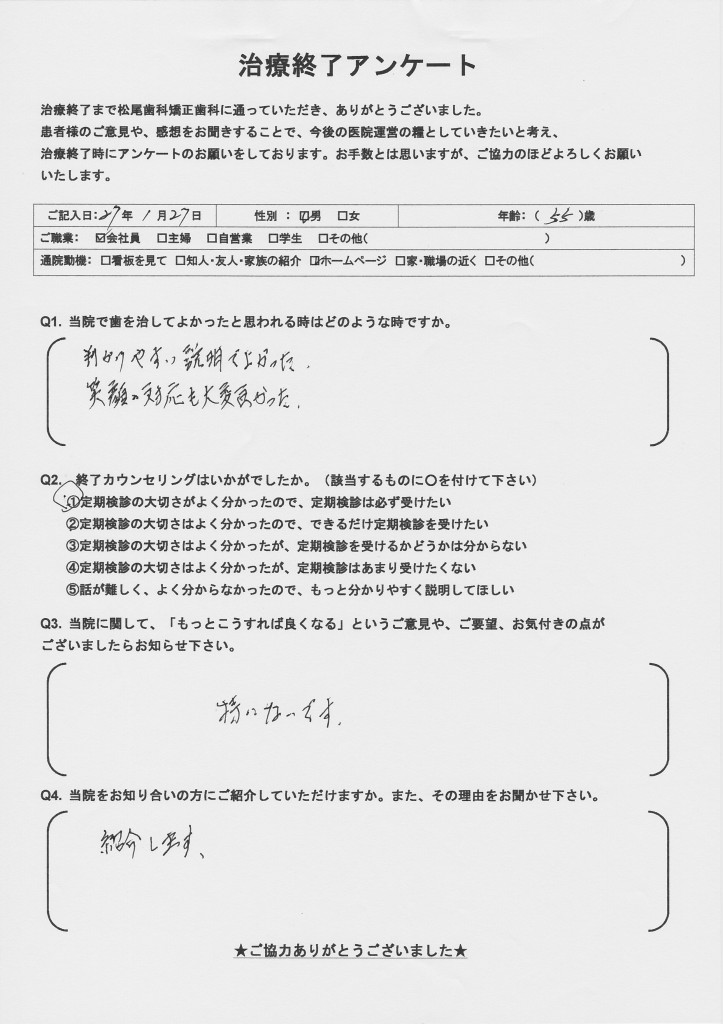 治療終了アンケート
治療終了まで松尾歯科矯正歯科に通っていただき、ありがとうございました。
患者様のご意見や、感想をお聞きすることで、今後の医院運営の糧としていきたいと考え、
治療終了時にアンケートのお願いをしております。お手数とは思いますが、ご協力のほどよろしくお願い
いたします。
ご記入日:27年 1月27日 性別 : ☑男 □女 年齢:( 55 )歳
ご職業: ☑会社員 □主婦 □自営業 □学生 □その他( )
通院動機: □看板を見て □知人・友人・家族の紹介 ☑ホームページ □家・職場の近く □その他( )
Q1. 当院で歯を治してよかったと思われる時はどのような時ですか。
判かりやすい説明でよかった.
笑顔の対応も大変良かった.
Q2. 終了カウンセリングはいかがでしたか。(該当するものに〇を付けて下さい)
①定期検診の大切さがよく分かったので、定期検診は必ず受けたい
②定期検診の大切さはよく分かったので、できるだけ定期検診を受けたい
③定期検診の大切さはよく分かったが、定期検診を受けるかどうかは分からない
④定期検診の大切さはよく分かったが、定期検診はあまり受けたくない
⑤話が難しく、よく分からなかったので、もっと分かりやすく説明してほしい
Q3. 当院に関して、「もっとこうすれば良くなる」というご意見や、ご要望、お気付きの点が
ございましたらお知らせ下さい。
特にないです.
Q4. 当院をお知り合いの方にご紹介していただけますか。また、その理由をお聞かせ下さい。
紹介します、
★ご協力ありがとうございました★